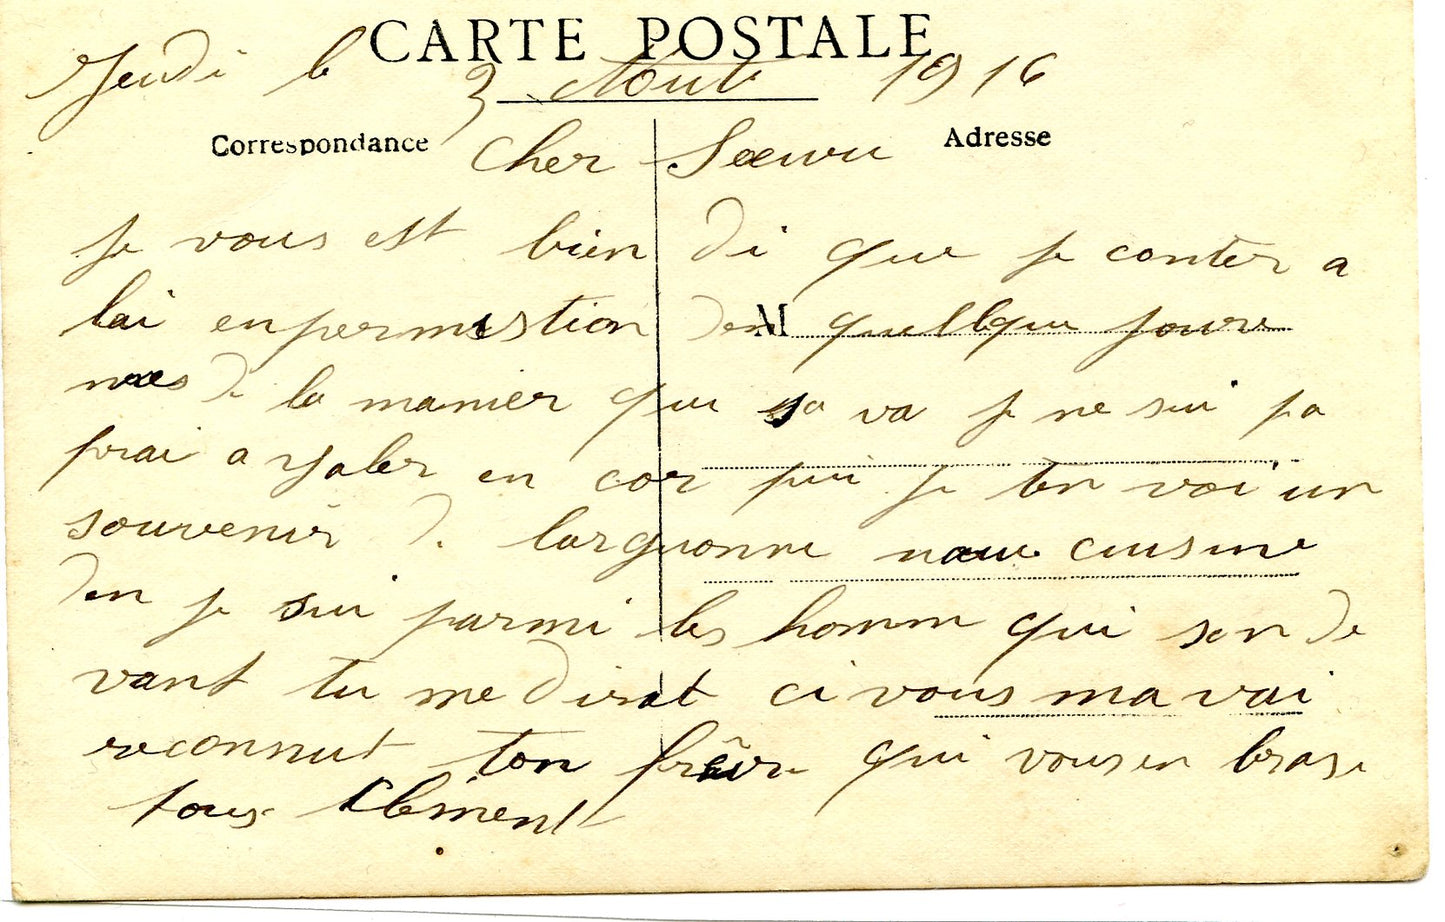 CARTE POSTALE
Jeudi le 3 Aout 1916
Correspondance
Adresse
Cher Sœuru
Je vous est bien di que je conter a
lai en permistion den quellque joure
M
mes di la manier que sa va je ne sui pa
prai a yaler en cor pui je ten voi un
souvenir d. largonne cuisine
den je sui parmi les homm qui son de
vant tu me dirat ci vous ma vai
reconnut ton frère qui vous en brase
tous Clément